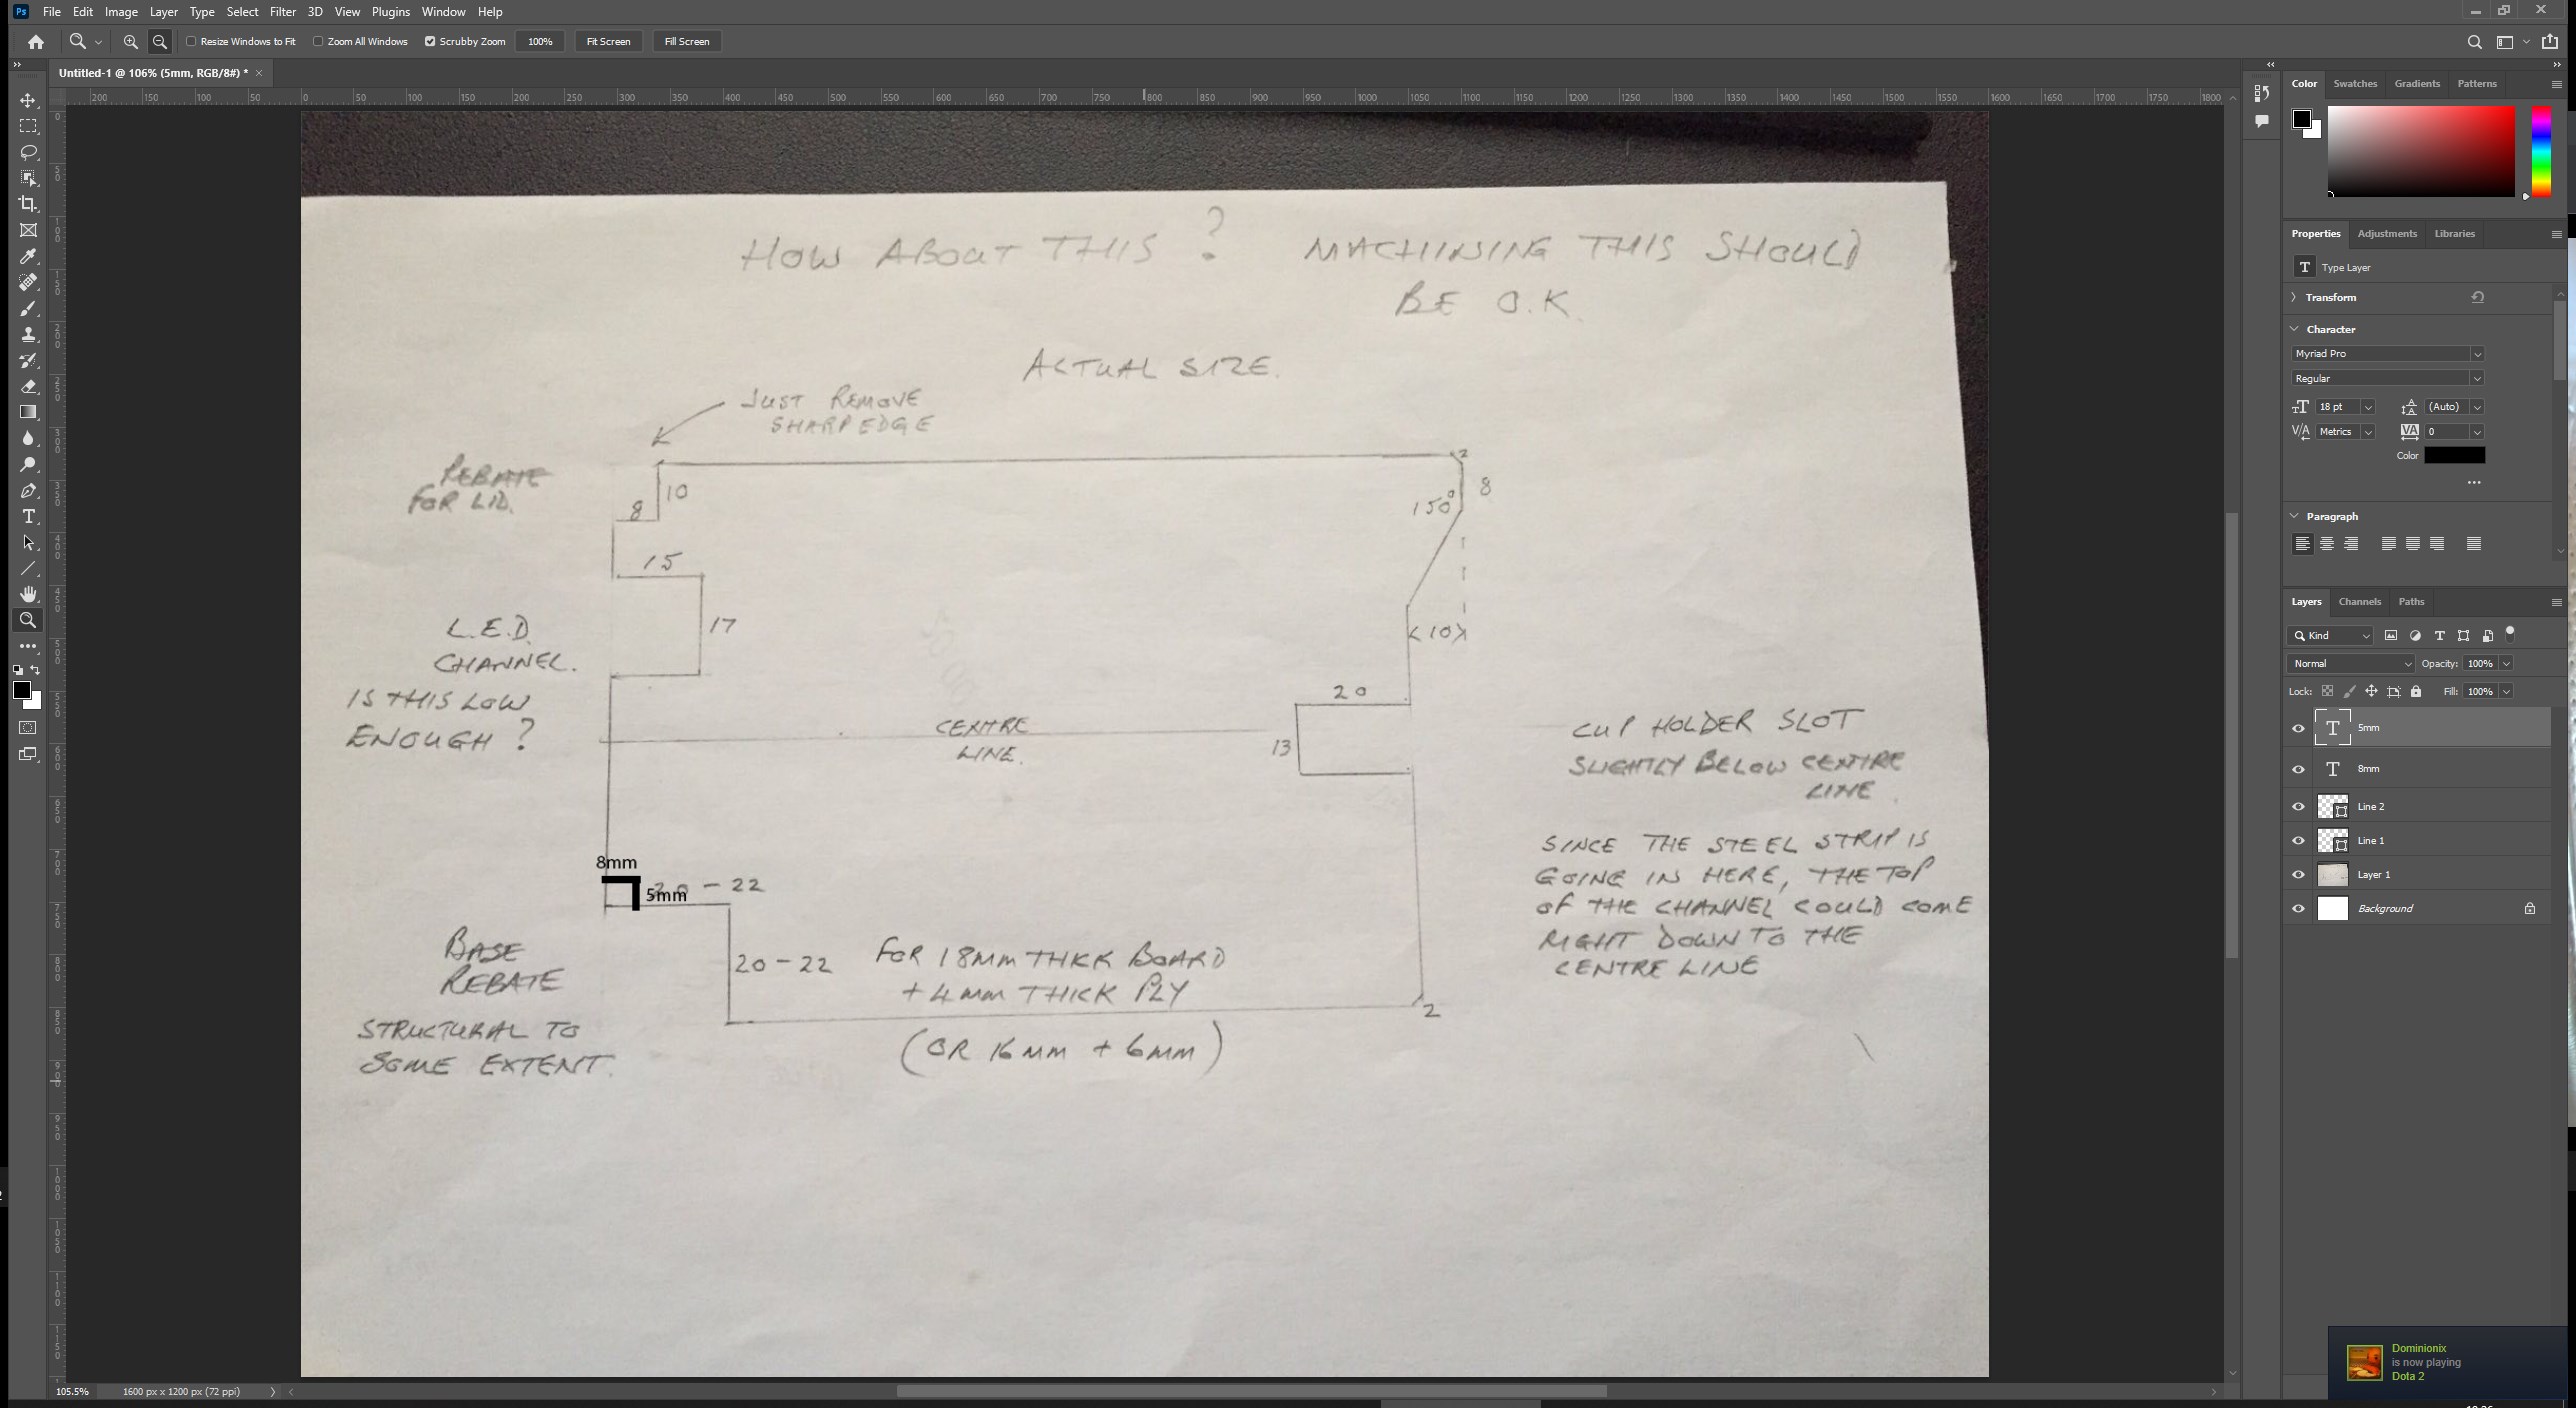 Ps File Edit Image Layer Type Select Filter 3D View Plugins Window Help
Resize Windows to Fit Zoom All Windows Scrubby Zoom 100% Fit Screen Fill Screen
Untitled-1 @ 106% (5mm, RGB/8#) * ×
200 150 100 50 0 50 100 150 200 250 300 350 400 450 500 550 600 650 700 750 800 850 900 950 1000 1050 1100 1150 1200 1250 1300 1350 1400 1450 1500 1550 1600 1650 1700 1750 1800
HOW ABOUT THIS? MACHINING THIS SHOULD
BE O.K.
ACTUAL SIZE.
JUST REMOVE
SHARP EDGE
REBATE
FOR LID.
8
10
2
8
150°
15
17
L.E.D.
CHANNEL.
IS THIS LOW
ENOUGH?
<10>
20
13
CENTRE
LINE.
CUP HOLDER SLOT
SLIGHTLY BELOW CENTRE
LINE
SINCE THE STEEL STRIP IS
GOING IN HERE, THE TOP
OF THE CHANNEL COULD COME
RIGHT DOWN TO THE
CENTRE LINE
8mm
5mm
20-22
BASE
REBATE
STRUCTURAL TO
SOME EXTENT.
20-22
FOR 18MM THICK BOARD
+ 4MM THICK PLY
(OR 16MM + 6MM)
2
Color Swatches Gradients Patterns
Properties Adjustments Libraries
T Type Layer
Transform
Character
Myriad Pro
Regular
18 pt (Auto)
Metrics 0
Color
Paragraph
Layers Channels Paths
Kind
Normal Opacity: 100%
Lock: Fill: 100%
T 5mm
T 8mm
Line 2
Line 1
Layer 1
Background
Dominionix
is now playing
Dota 2
105.5% 1600 px x 1200 px (72 ppi)